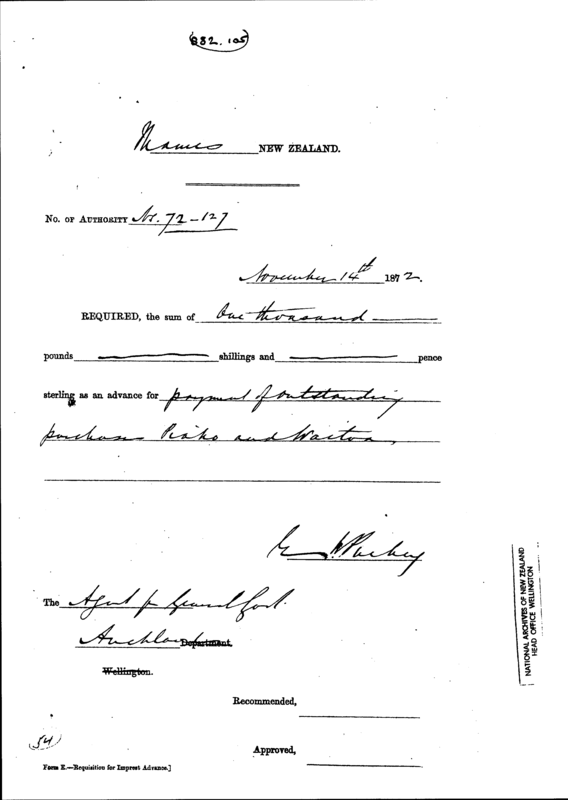 882.105
Thames NEW ZEALAND.
No. OF AUTHORITY No. 72-127
November 14th 1872.
REQUIRED, the sum of One thousand
pounds shillings and pence
sterling as an advance for payment of outstanding
purchases Piako and Waitoa,
E W Puckey
The Agent for General Govt.
Auckland Department.
Wellington.
Recommended,
Approved,
54
Form E.—Requisition for Imprest Advance.]
NATIONAL ARCHIVES OF NEW ZEALAND
HEAD OFFICE WELLINGTON